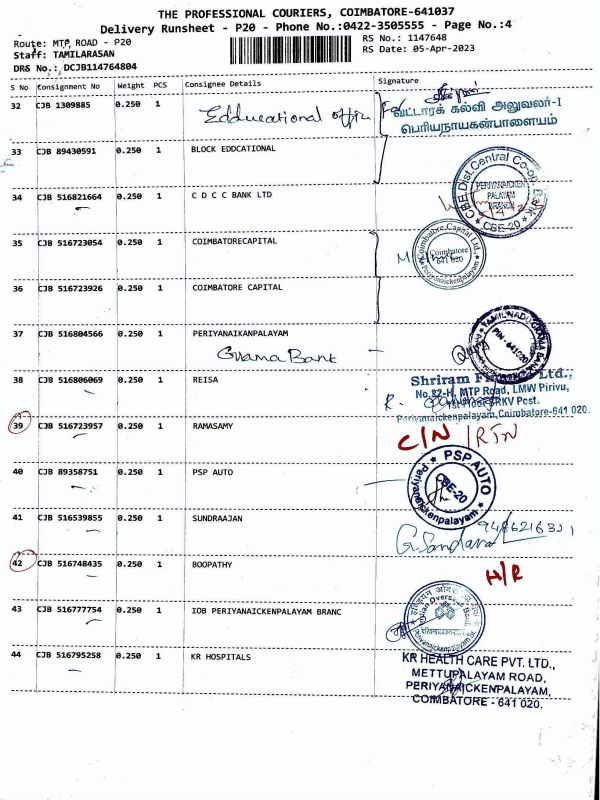 THE PROFESSIONAL COURIERS, COIMBATORE-641037
Delivery Runsheet - P20 - Phone No.:0422-3505555 - Page No.:4
Route: MTP ROAD - P20
RS No.: 1147648
Staff: TAMILARASAN
RS Date: 05-Apr-2023
DRS No.: DCJB114764804
S No Consignment No Weight PCS Consignee Details Signature
32 CJB 1309885 0.250 1 Edducational office For
வட்டாரக் கல்வி அலுவலர்-I
பெரியநாயகன்பாளையம்
33 CJB 89430591 0.250 1 BLOCK EDDCATIONAL
34 CJB 516821664 0.250 1 C D C C BANK LTD
CBE Dist. Central Co-op. Bank
PERIYANAICKEN
PALAYAM
BRANCH
CBE-20
35 CJB 516723054 0.250 1 COIMBATORECAPITAL
Coimbatore Capital Ltd.
Coimbatore
641 020
Periyanaickenpalayam
36 CJB 516723926 0.250 1 COIMBATORE CAPITAL
37 CJB 516804566 0.250 1 PERIYANAIKANPALAYAM
Grama Bank
TAMILNADU GRAMA BANK
PIN-641020
38 CJB 516806069 0.250 1 REISA
Shriram Ltd.,
No.32-H, MTP Road, LMW Pirivu,
SRKV Post.
Periyanaickenpalayam, Coimbatore-641 020.
39 CJB 516723957 0.250 1 RAMASAMY C/N /RTN
40 CJB 89358751 0.250 1 PSP AUTO
PSP AUTO
CBE-20
Periyanaickenpalayam
41 CJB 516539855 0.250 1 SUNDRAAJAN
42 CJB 516748435 0.250 1 BOOPATHY H/R
43 CJB 516777754 0.250 1 IOB PERIYANAICKENPALAYAM BRANC
Indian Overseas Bank
44 CJB 516795258 0.250 1 KR HOSPITALS
KR HEALTH CARE PVT. LTD.,
METTUPALAYAM ROAD,
PERIYANAICKENPALAYAM,
COIMBATORE - 641 020.